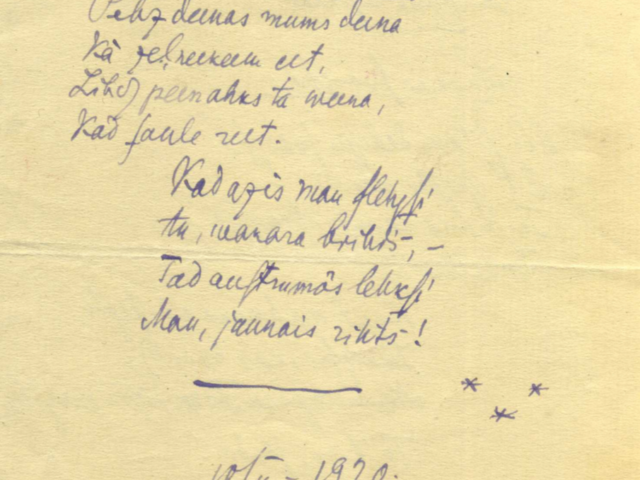 Pehz deenas mums deena
Kà zelineekeem eet,
Lihds peenahks ta weena,
Kad saule reet.
Kad azis man slehgsi
tu, wakara brihdis, –
Tad austrumôs lehksi
Man, jaunais rihts!
* *
*
1920.